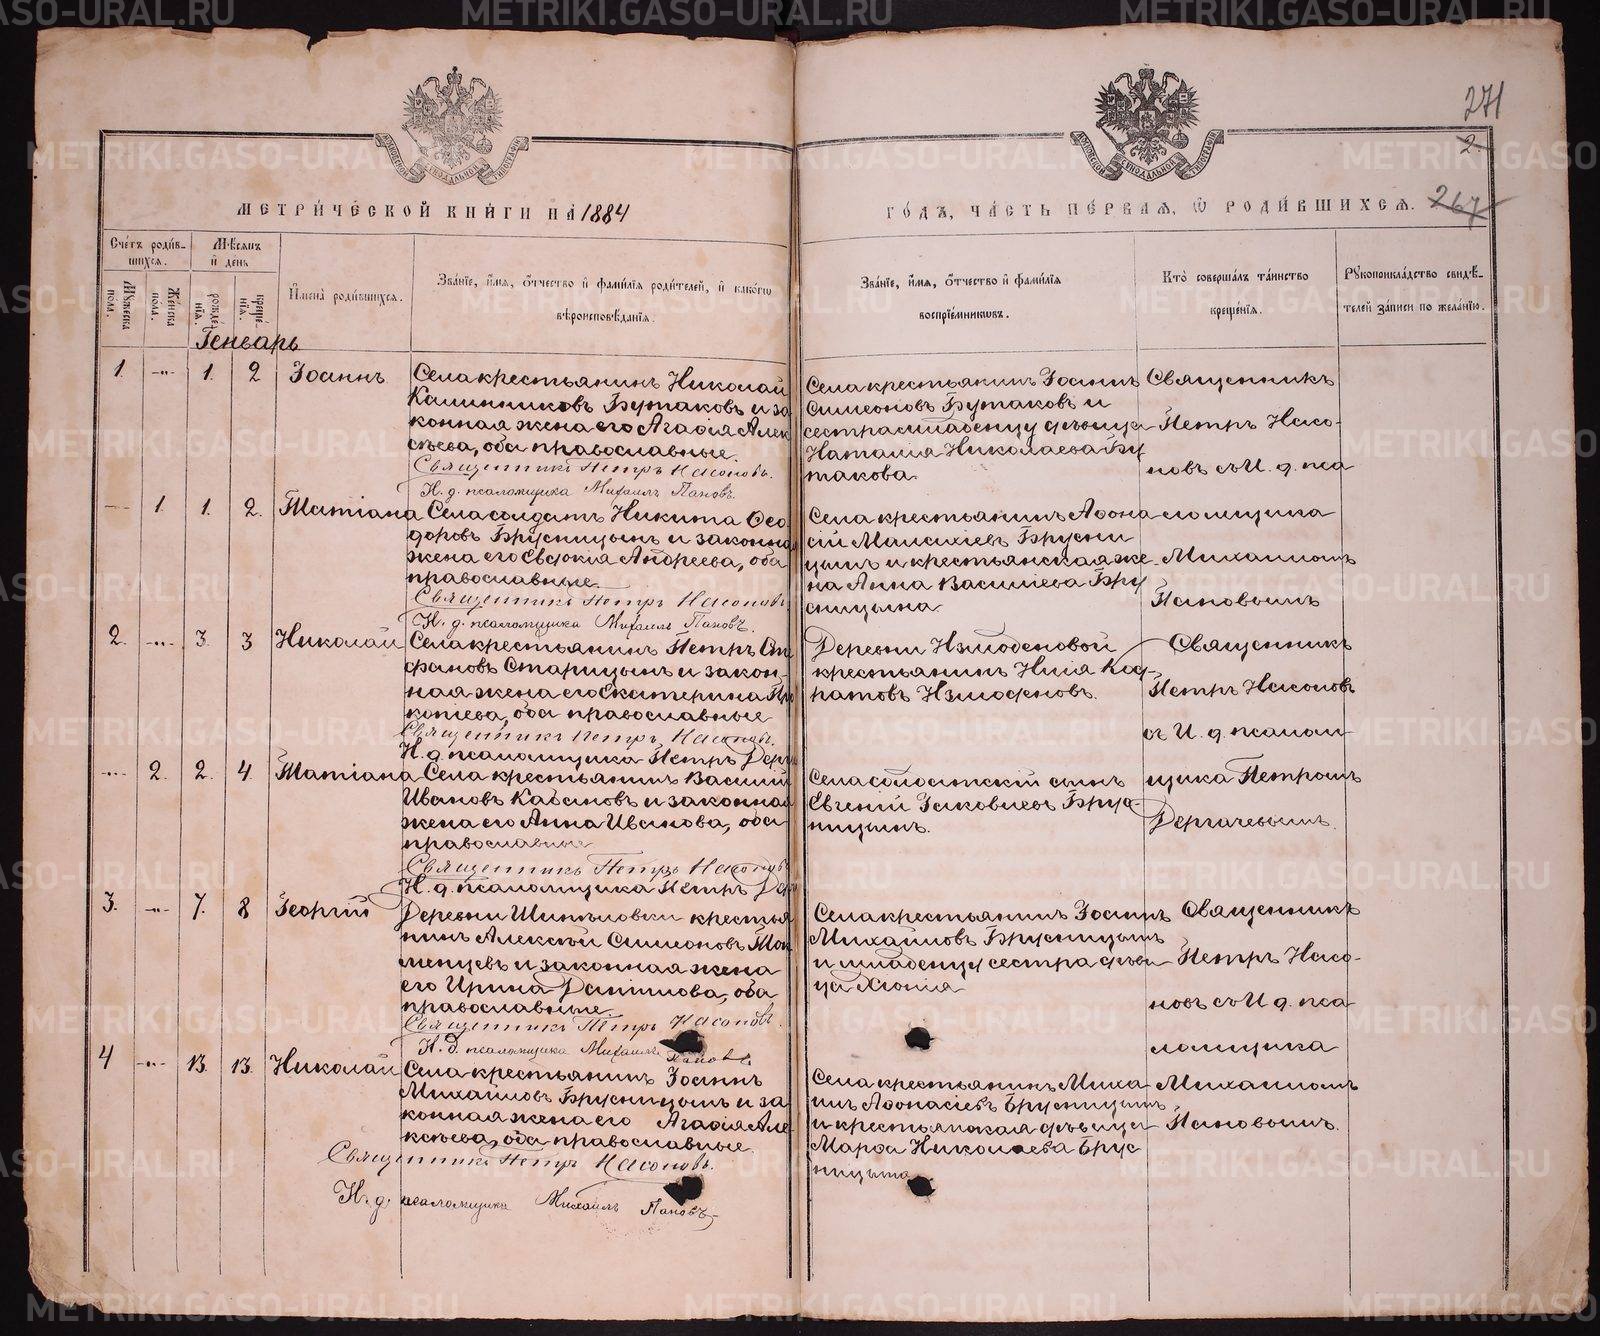 METRIKI.GASO-URAL.RU
271
2
МОСКОВСКОЙ СѴНОДАЛЬНОЙ ТИПОГРАФІИ
МОСКОВСКОЙ СѴНОДАЛЬНОЙ ТИПОГРАФІИ
МЕТРИ́ЧЕСКОЙ КНИ́ГИ НА 1884
ГО́ДЪ, ЧА́СТЬ ПЕ́РВАЯ, Ѽ РОДИ́ВШИХСЯ.
267
Сче́тъ роди́вшихся.
Мѣ́сяцъ и҆ де́нь
Мꙋ́жеска по́ла.
Же́нска по́ла.
рожде́нїѧ.
креще́нїѧ.
И҆мена̀ роди́вшихсѧ.
Зва́нїе, и҆́мѧ, ѻ҆́тчество и҆ фами́лїѧ роди́телей, и҆ како́гѡ
вѣроисповѣ́данїѧ.
Зва́нїе, и҆́мѧ, ѻ҆́тчество и҆ фами́лїѧ
воспрїе́мникѡвъ.
Кто̀ соверша́лъ та́инство
креще́нїѧ.
Рꙋкоприкла́дство свидѣ́-
телей за́писи по жела́нїю.
Генварь
1. -"- 1. 2 Іоаннъ
Села крестьянинъ Николай
Калинниковъ Бутаковъ и за
конная жена его Агафія Алек
сѣева, оба православные.
Священникъ Петръ Насоновъ.
И. д. псаломщика Михаилъ Пановъ.
Села крестьянинъ Іоаннъ
Симеоновъ Бутаковъ и
сестра младенцу дѣвица
Наталія Николаева Бу
такова
Священникъ
Петръ Насо-
новъ съ И. д. пса
--- 1. 1. 2. Татіана
Села солдатъ Никита Ѳео
доровъ Брусницынъ и законна
жена его Евдокія Андреева, оба
православные.
Священникъ Петръ Насоновъ
И. д. псаломщика Михаилъ Пановъ.
Села крестьянинъ Аѳона
сій Брусни
цынъ и крестьянская же
на Анна Василіева Бру
сницына
ломщика
Михаиломъ
Пановымъ
2. -"- 3. 3 Николай
Села крестьянинъ Петръ Сте
фановъ Старицынъ и закон-
ная жена его Екатерина Про
копіева, оба православные
Священникъ Петръ Насоновъ.
И. д. псаломщика Петръ Дерг
Деревни Измоденовой
крестьянинъ Илія Код-
ратовъ Измоденовъ.
Священникъ
Петръ Насоновъ
съ И. д. псалом
-"- 2. 2. 4. Татіана
Села крестьянинъ Василій
Ивановъ Кабановъ и законная
жена его Анна Иванова, оба
православные
Священникъ Петръ Насоновъ
И. д. псаломщика Петръ Дер
Села солдатскій сынъ
Евгеній Іаковлевъ Брус-
ницынъ.
щика Петромъ
Дергачевымъ.
3. -"- 7. 8 Георгій
Деревни крестья
нинъ Алексѣй Симеоновъ
и законная жена
его Ирина Даніилова, оба
православные
Священникъ Петръ Насоновъ.
И. д. псаломщика Михаилъ Пановъ
Села крестьянинъ Іоаннъ
Михайловъ Брусницынъ
и младенцу сестра дѣви
ца Хіонія
Священникъ
Петръ Насо-
новъ съ И д. пса
ломщика
4 -"- 13. 13. Николай
Села крестьянинъ Іоаннъ
Михайловъ Брусницынъ и за
конная жена его Агафія Але
ксѣева, оба православные.
Священникъ Петръ Насоновъ.
И. д. псаломщика Михаилъ Пановъ
Села крестьянинъ Миха
илъ Аѳонасіевъ Брусницынъ
и крестьянская дѣвица
Марѳа Николаева Брус
ницына
Михаиломъ
Пановымъ.